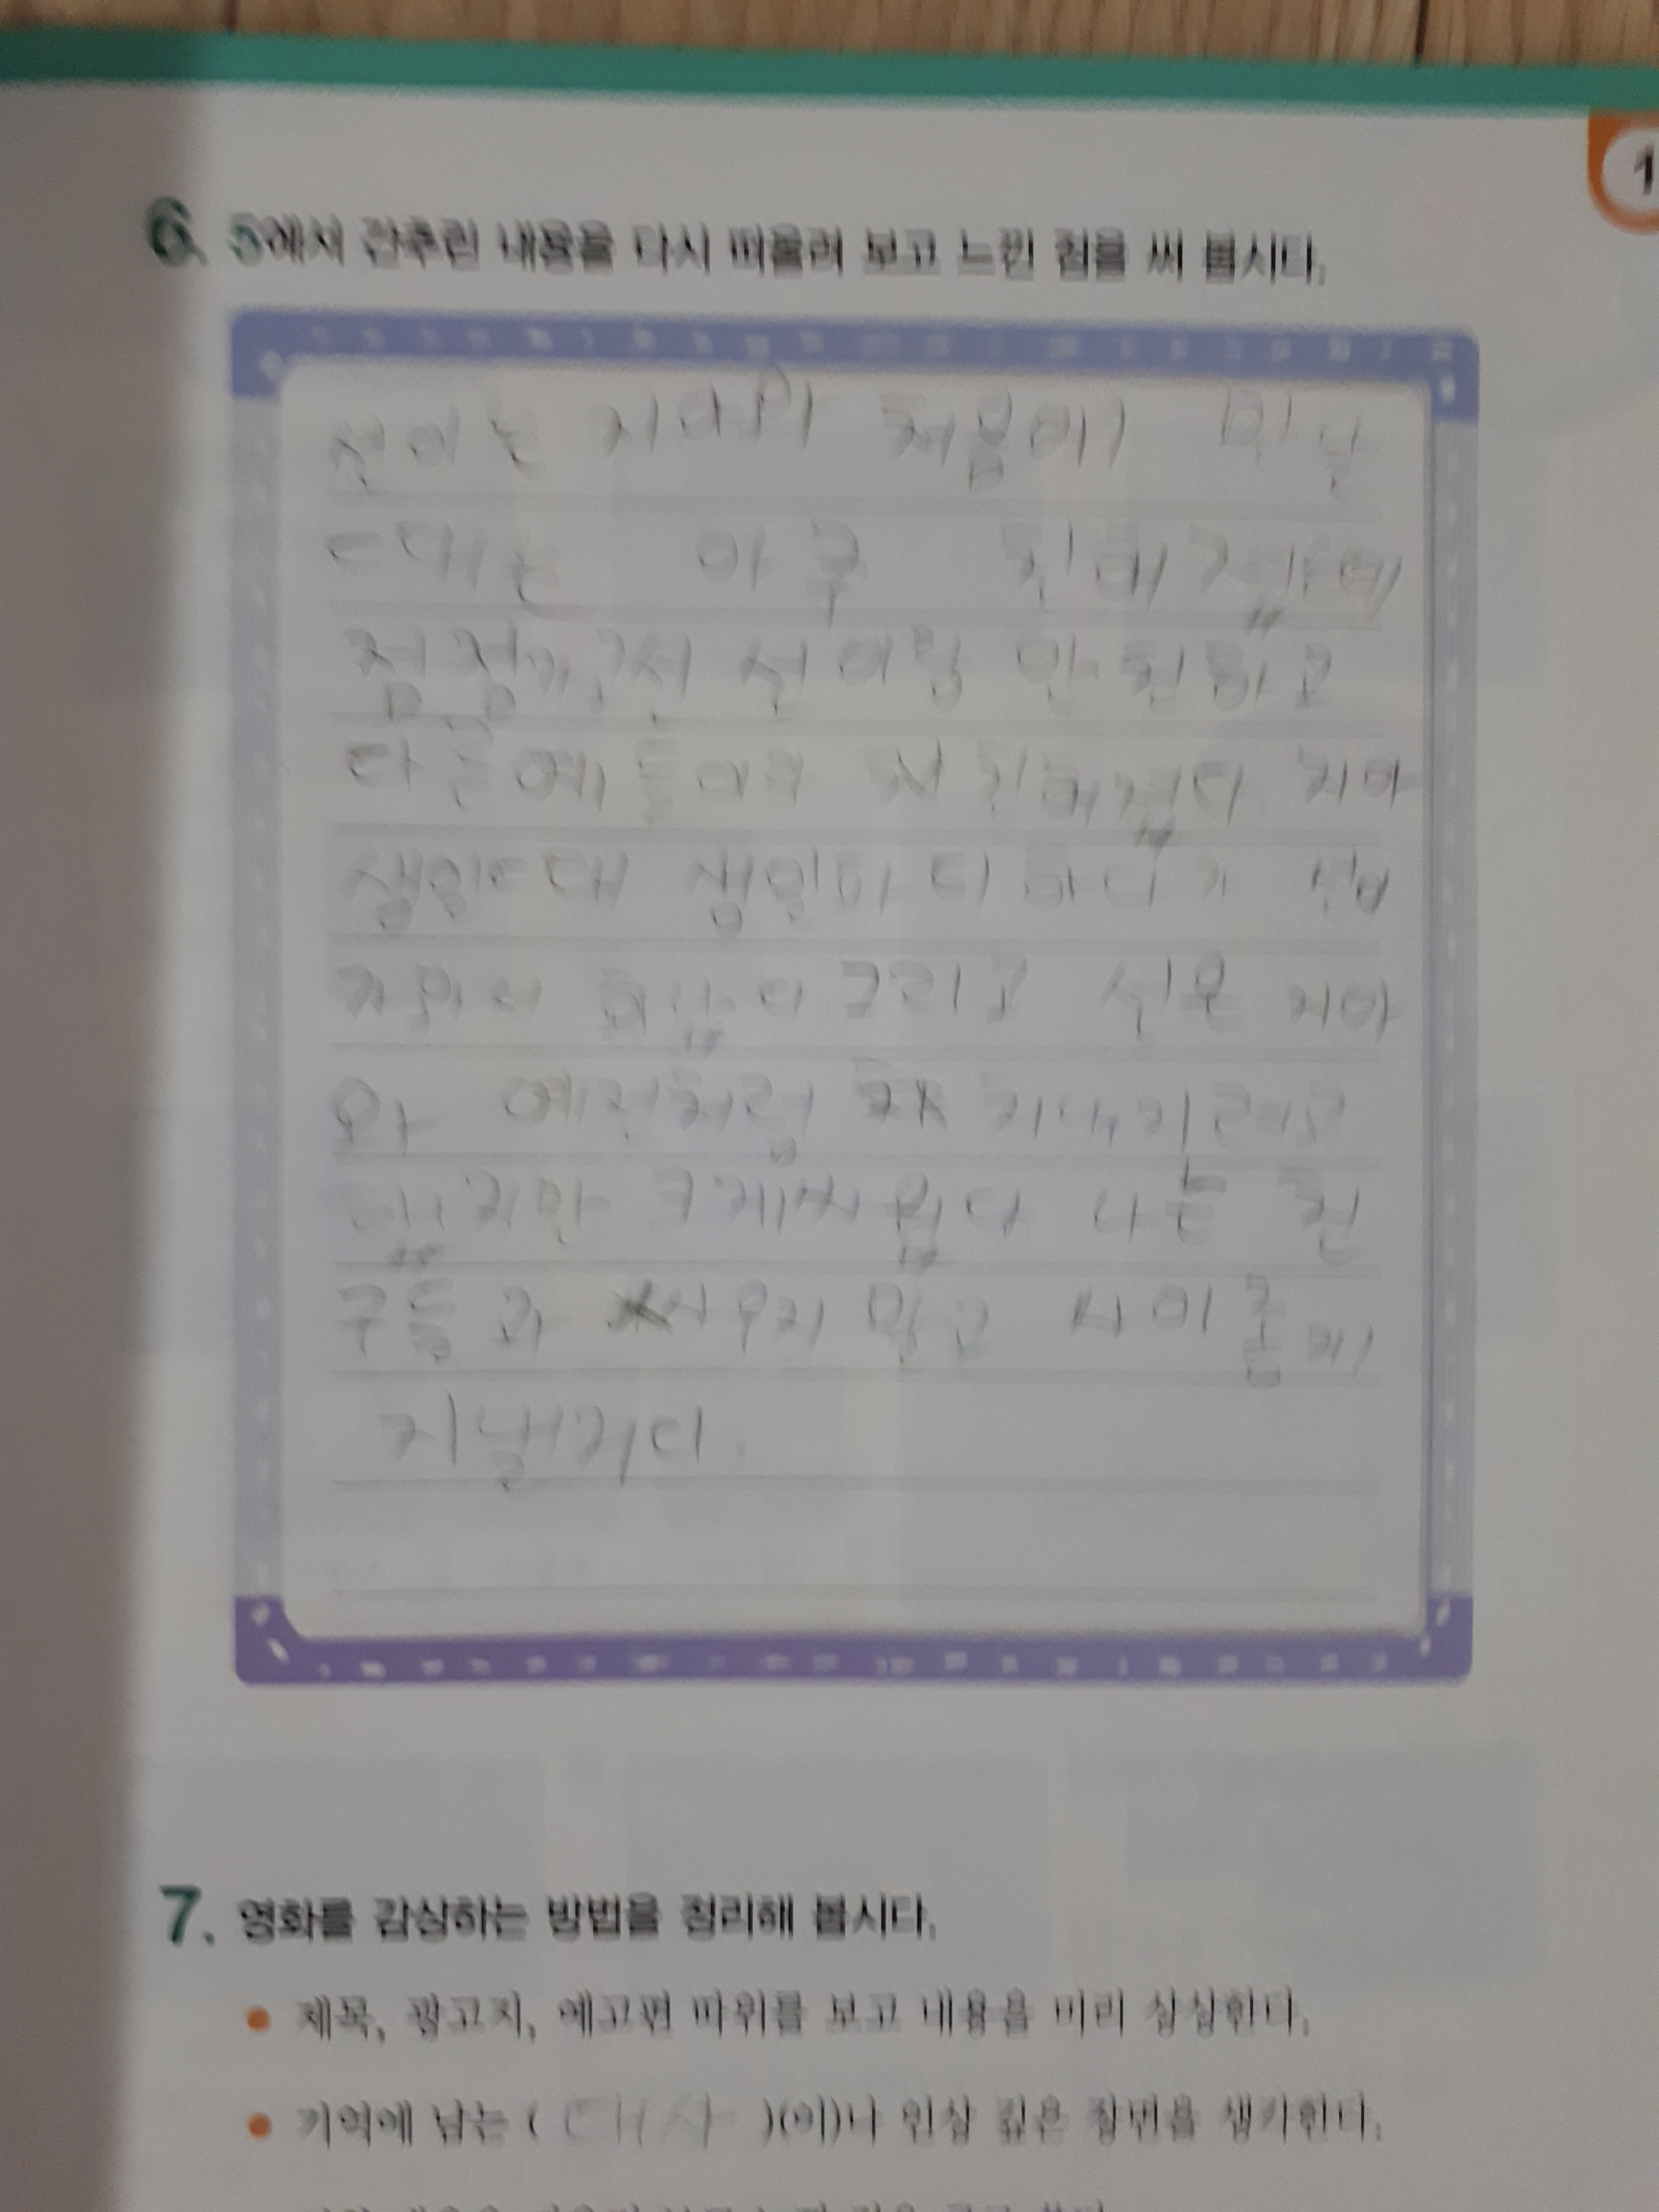 1
6. 5에서 간추린 내용을 다시 떠올려 보고 느낀 점을 써 봅시다.
선이는 지아와 처음에 만날
때는 아주 친해졌는데
점점 선이랑 안 친하고
다른 애들이랑 친해졌다 지아
생일 때 생일파티 하다가
그리고 선은 지아
와 예전처럼 지내기려고
했지만 크게 싸웠다 나는 친
구들과 싸우지 말고 사이 좋게
지낼거다.
7. 영화를 감상하는 방법을 정리해 봅시다.
제목, 광고지, 예고편 따위를 보고 내용을 미리 상상한다.
기억에 남는 ( 대사 )(이)나 인상 깊은 장면을 생각한다.